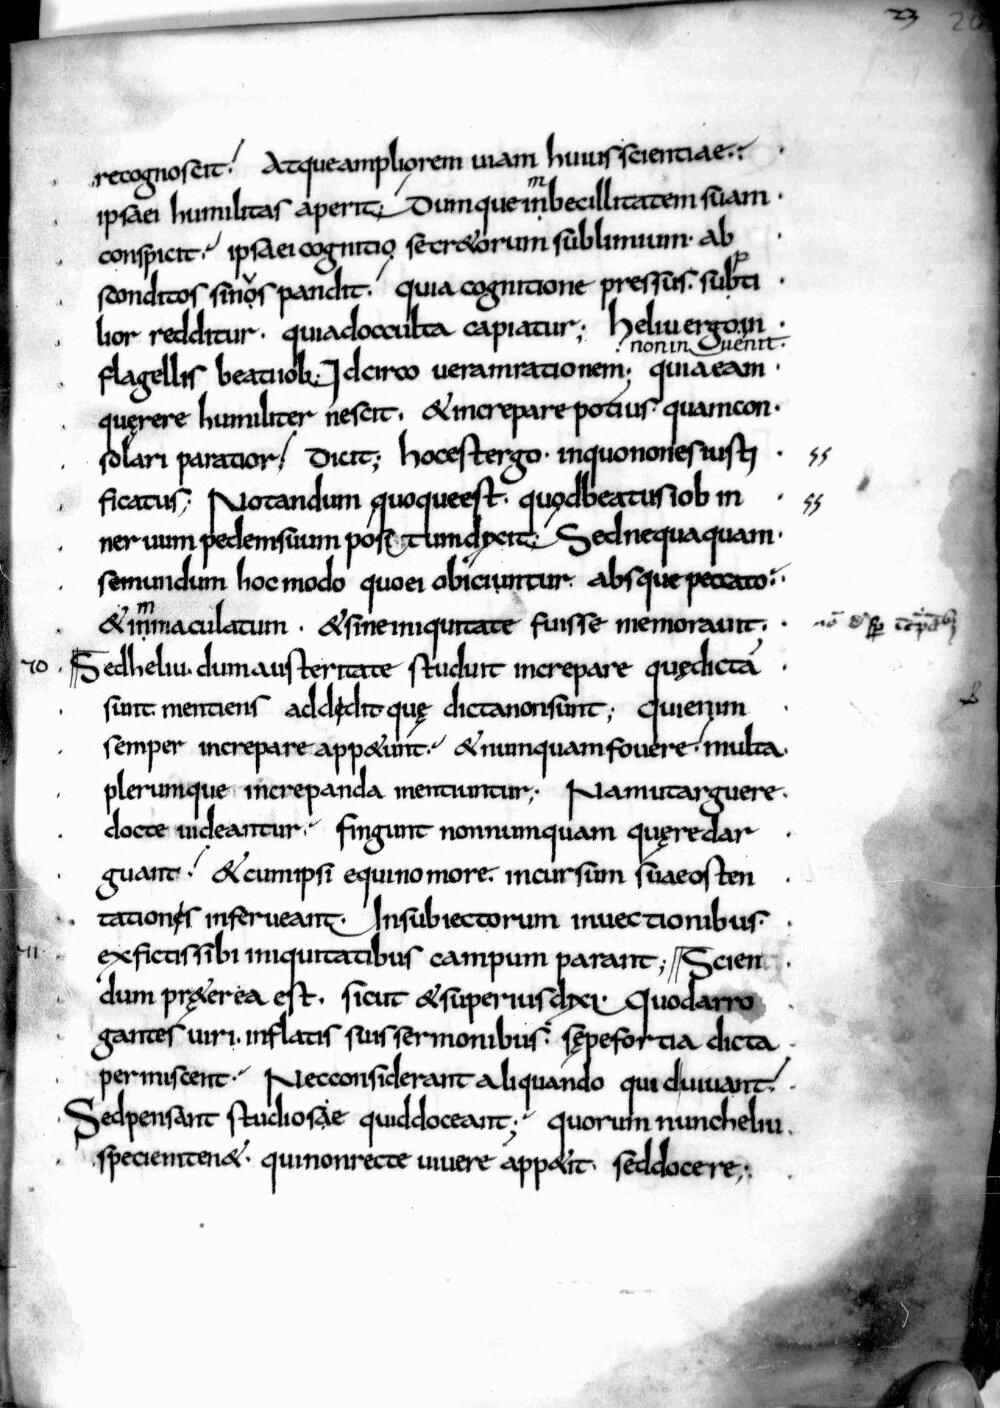 23 20
recognoscit! Atque ampliorem uiam huius scientiae.
ipsa ei humilitas aperit; Dumque inbecillitatem suam
m
conspicit. ipsa ei cognitio secr&orum sublimium. ab
sconditos sinos pandit. quia cognitione pressus. subti
p
lior redditur. quia docculta capiatur; heliu ergo in
non inuenit
flagellis beati iob. Idcirco ueram rationem; quia eam
quęrere humiliter nescit. & increpare potius quam con
solari paratior! Dicit; hoc est ergo. in quo non es iusti
ss
ficatus; Notandum quoque est. quod beatus iob in
ss
neruum pedem suum positum dixit; Sed nequaquam
se mundum hoc modo quo ei obiciuntur. absque peccato
& inmaculatum. & sine iniquitate fuisse memorauit.
m
70 Sed heliu. dum austeritate studuit increpare quę dicta
sunt. mentiens addidit quę dicta non sunt; Qui enim
semper increpare app&unt. & numquam fouere. multa
plerumque increpanda mentiuntur; Nam ut arguere
docte uideantur. fingunt nonnumquam quę red ar
guant! & cum ipsi equino more. in cursum suae osten
tationis inferueant. In subiectorum inuectionibus
71 ex fictis sibi iniquitatibus campum parant; Scien
dum pr&erea est. sicut & superius dixi. Quod arro
gantes uiri. inflatis suis sermonibus. sępe fortia dicta
permiscent. Nec considerant aliquando quid uiuant.
Sed pensant studiosae quid doceant; quorum nunc heliu
speciem ten&. qui non recte uiuere app&it. sed docere;